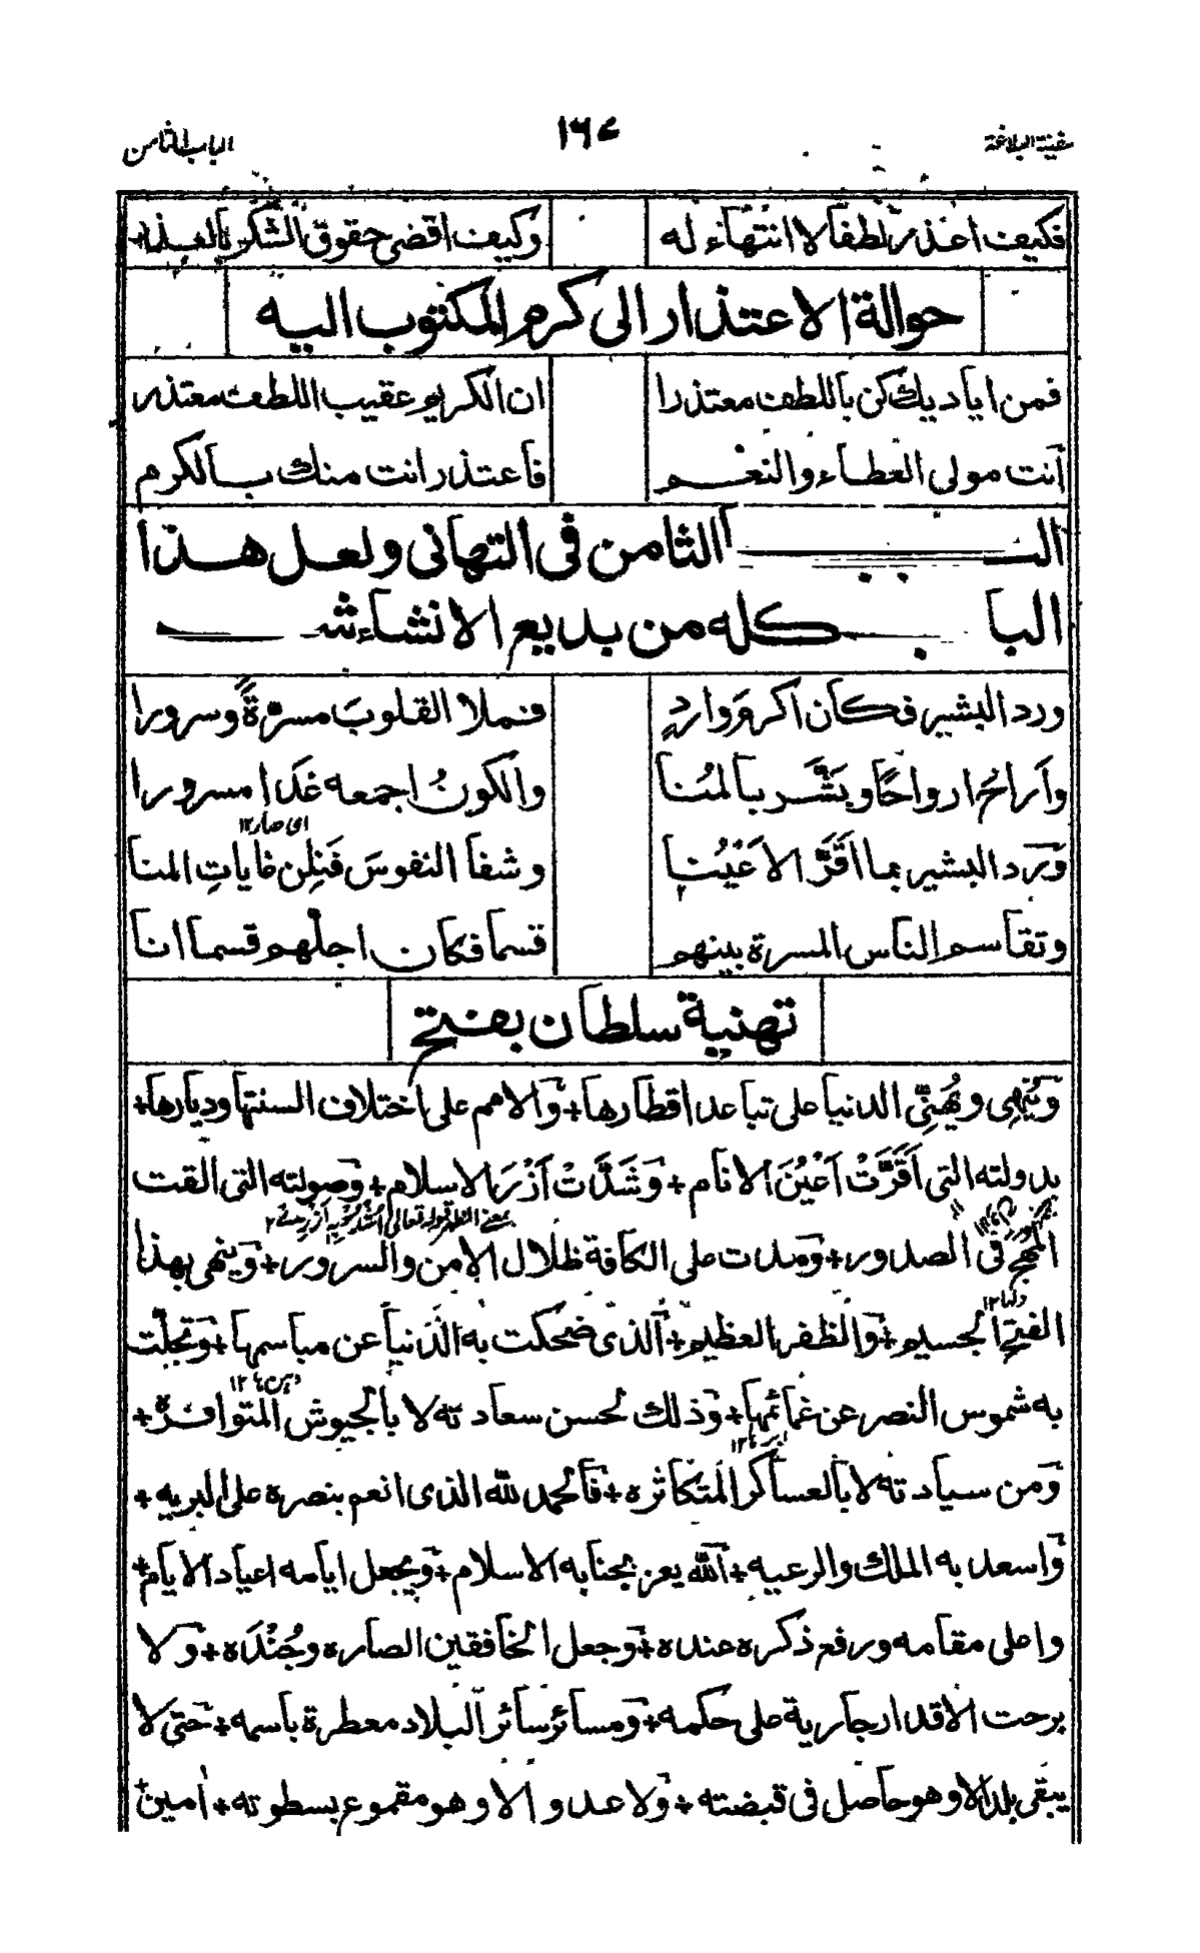 سفينة البلاغة ١٦٤ الباب الثامن
فكيف اعذر لطفا لا انتهاء له وكيف اقضى حقوق الشكر بالعذر
حوالة الاعتذار الى كرم المكتوب اليه
فمن اياديك كن باللطف معتذرا ان الكريم عقيب اللطف معتذر
أنت مولى العطاء والنعم فاعتذر انت منك بالكرم
الباب الثامن فى التهانى ولعل هذا
الباب كله من بديع الانشاء
ورد البشير فكان اكرمَ واردٍ فملا القلوبَ مسرّةً وسرورا
واَراحُ ارواحًا وبَشَّر بالمُنا والكونُ اجمعه غَدَا مسرورا
اى صار١٢
وَرد البشير بما اَقَرَّ الاَعْيُنا وشفا النفوسَ فَنِلِن غاياتِ المنا
وتقاسم الناس المسرة بينهم قسما فكان اجلّهم قسما انا
تهنية سلطان بفتح
وَيُنهى ويُهَنِّى الدنيا على تباعد اقطارها+ وَالامم على اختلاف السنتها وديارها+
بدولته التى اَقَرَّتْ اَعْيُنَ الانام+ وَشَدَّتْ اَزْرَ الاسلام+ وَصولته التى القت
بمعنى الظهر قوله تعالى اشدد به ازرى
المهج فى الصدور+ وَمدت على الكافة ظلال الامن والسرور+ وَينهى بهذا
الفتح الجسيم+ وَالظفر العظيم+ اَلذى ضحكت به الدنيا عن مباسمها+ وَتجلّت
به شموس النصر عن غمائمها+ وَذلك لحسن سعادته لا بالجيوش المتوافرة+
ابر ١٢
وَمن سيادته لا بالعساكر المتكاثره+ فَالحمد لله الذى انعم بنصره على البريه+
وَاسعد به الملك والرعيه+ اَلله يعز بجنابه الاسلام+ وَيجعل ايامه اعياد الايام+
واعلى مقامه ورفع ذكره عنده+ وَجعل الخافقين انصاره وجُنْدَه+ وَلا
برحت الاقدار جارية على حكمه+ وَمسائر سائر البلاد معطرة باسمه+ حتى لا
يبقى بلد الا وهو حاصل فى قبضته+ وَلا عدو الا وهو مقموع بسطوته+ اٰمين+